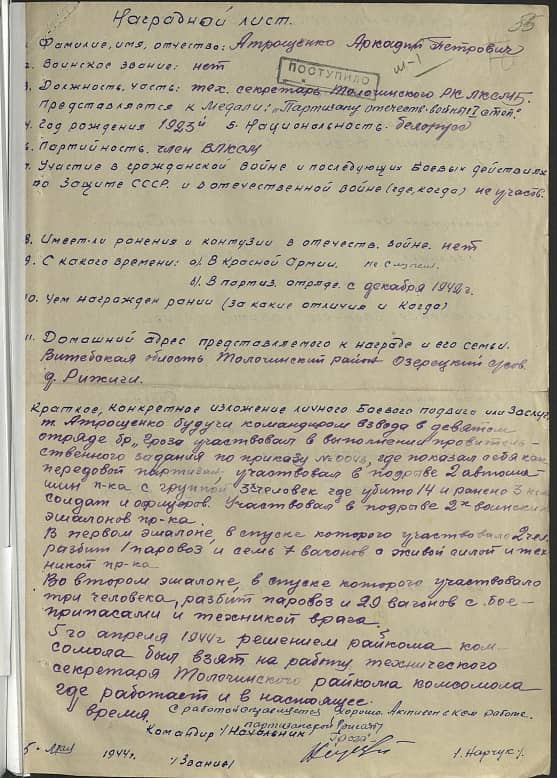 Наградной лист.
55
1. Фамилия, имя, отчество: Атрощенко Аркадий Петрович
2. Воинское звание: нет
ПОСТУПИЛО
3. Должность, часть: тех. секретарь Толочинского РК ЛКСМБ.
Представляется к Медали: "Партизану отечеств. войны" II степ.
4. Год рождения 1923й 5. Национальность. белорус
6. Партийность. член ВЛКСМ
7. Участие в гражданской войне и последующих боевых действиях
по защите СССР. и в отечественной войне (где, когда) не участв.
8. Имеет-ли ранения и контузии в отечеств. войне. нет
9. С какого времени: а). В Красной Армии. не служил.
б). В партиз. отряде. с декабря 1942 г.
10. Чем награжден рании (за какие отличия и когда)
11. Домашний адрес представляемого к награде и его семьи.
Витебская область Толочинский район Озерецкий с/сов.
д. Рижиги.
Краткое, конкретное изложение личного боевого подвига или заслуг.
т. Атрощенко будучи командиром взвода в девятом
отряде бр. "Гроза" участвовал в выполнении правитель-
ственного задания по приказу №0043, где показал себя как
передовой партизан, участвовал в подрыве 2 автома-
шин п-ка с группой 3х человек где убито 14 и ранено 3
солдат и офицеров. Участвовал в подрыве 2х воинских
эшалонов пр-ка.
В первом эшалоне, в спуске которого участвовало 2 чел.
разбит 1 паровоз и семь 7 вагонов с живой силой и тех
никой пр-ка
Во втором эшалоне, в спуске которого участвовало
три человека, разбит паровоз и 29 вагонов с бое-
припасами и техникой врага.
5го апреля 1944г решением райкома ком-
сомола был взят на работу технического
секретаря Толочинского райкома комсомола
где работает и в настоящее
время. С работой справляется хорошо. Активен в ком. работе.
Командир /Начальник партизанской бригады
"Гроза"
1944г. /Звание/ /. Нарчук /.